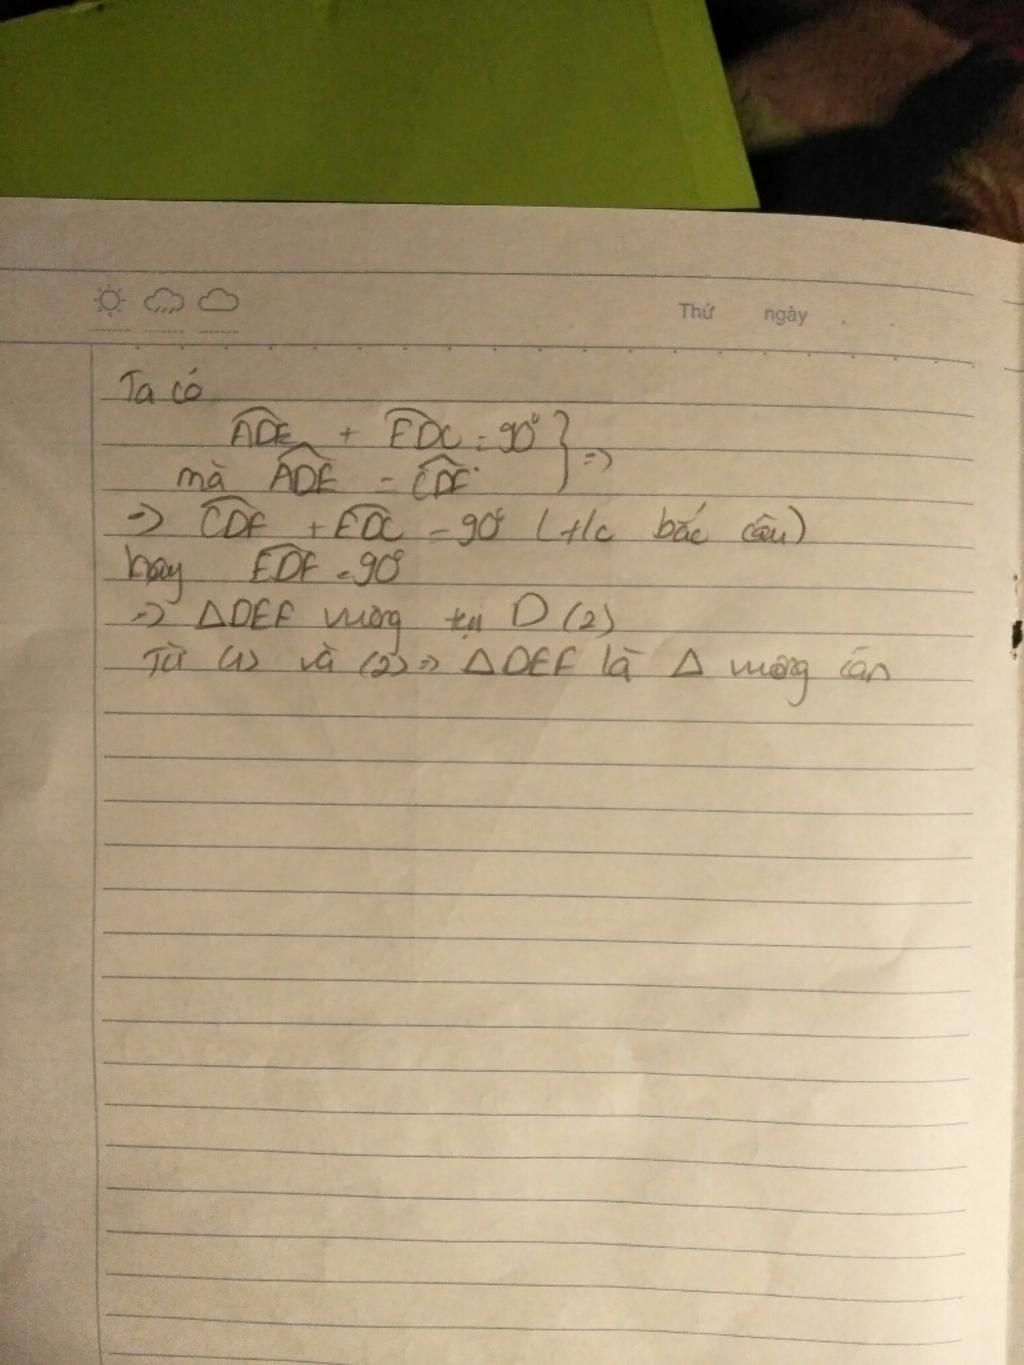 Thứ ngày
Ta có
ADE + EDC = 90°
mà ADE = CDF } =>
=> CDF + EDC = 90° (t/c bắc cầu)
hay EDF = 90°
=> ΔDEF vuông tại D (2)
Từ (1) và (2) => ΔDEF là Δ vuông cân